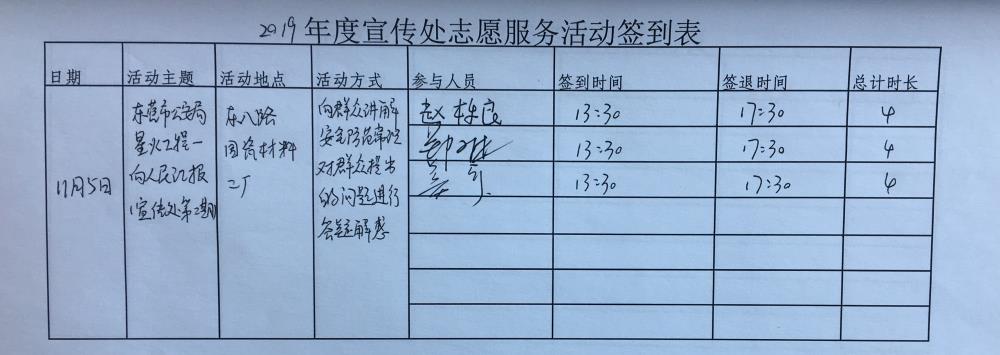 2019年度宣传处志愿服务活动签到表
日期 活动主题 活动地点 活动方式 参与人员 签到时间 签退时间 总计时长
11月5日
东营市公安局
星火工程一
向人民汇报
(宣传处第2期)
东八路
国瓷材料
二厂
向群众讲解
安全防范常识
对群众提出
的问题进行
答疑解惑
赵 13:30 17:30 4
13:30 17:30 4
13:30 17:30 4